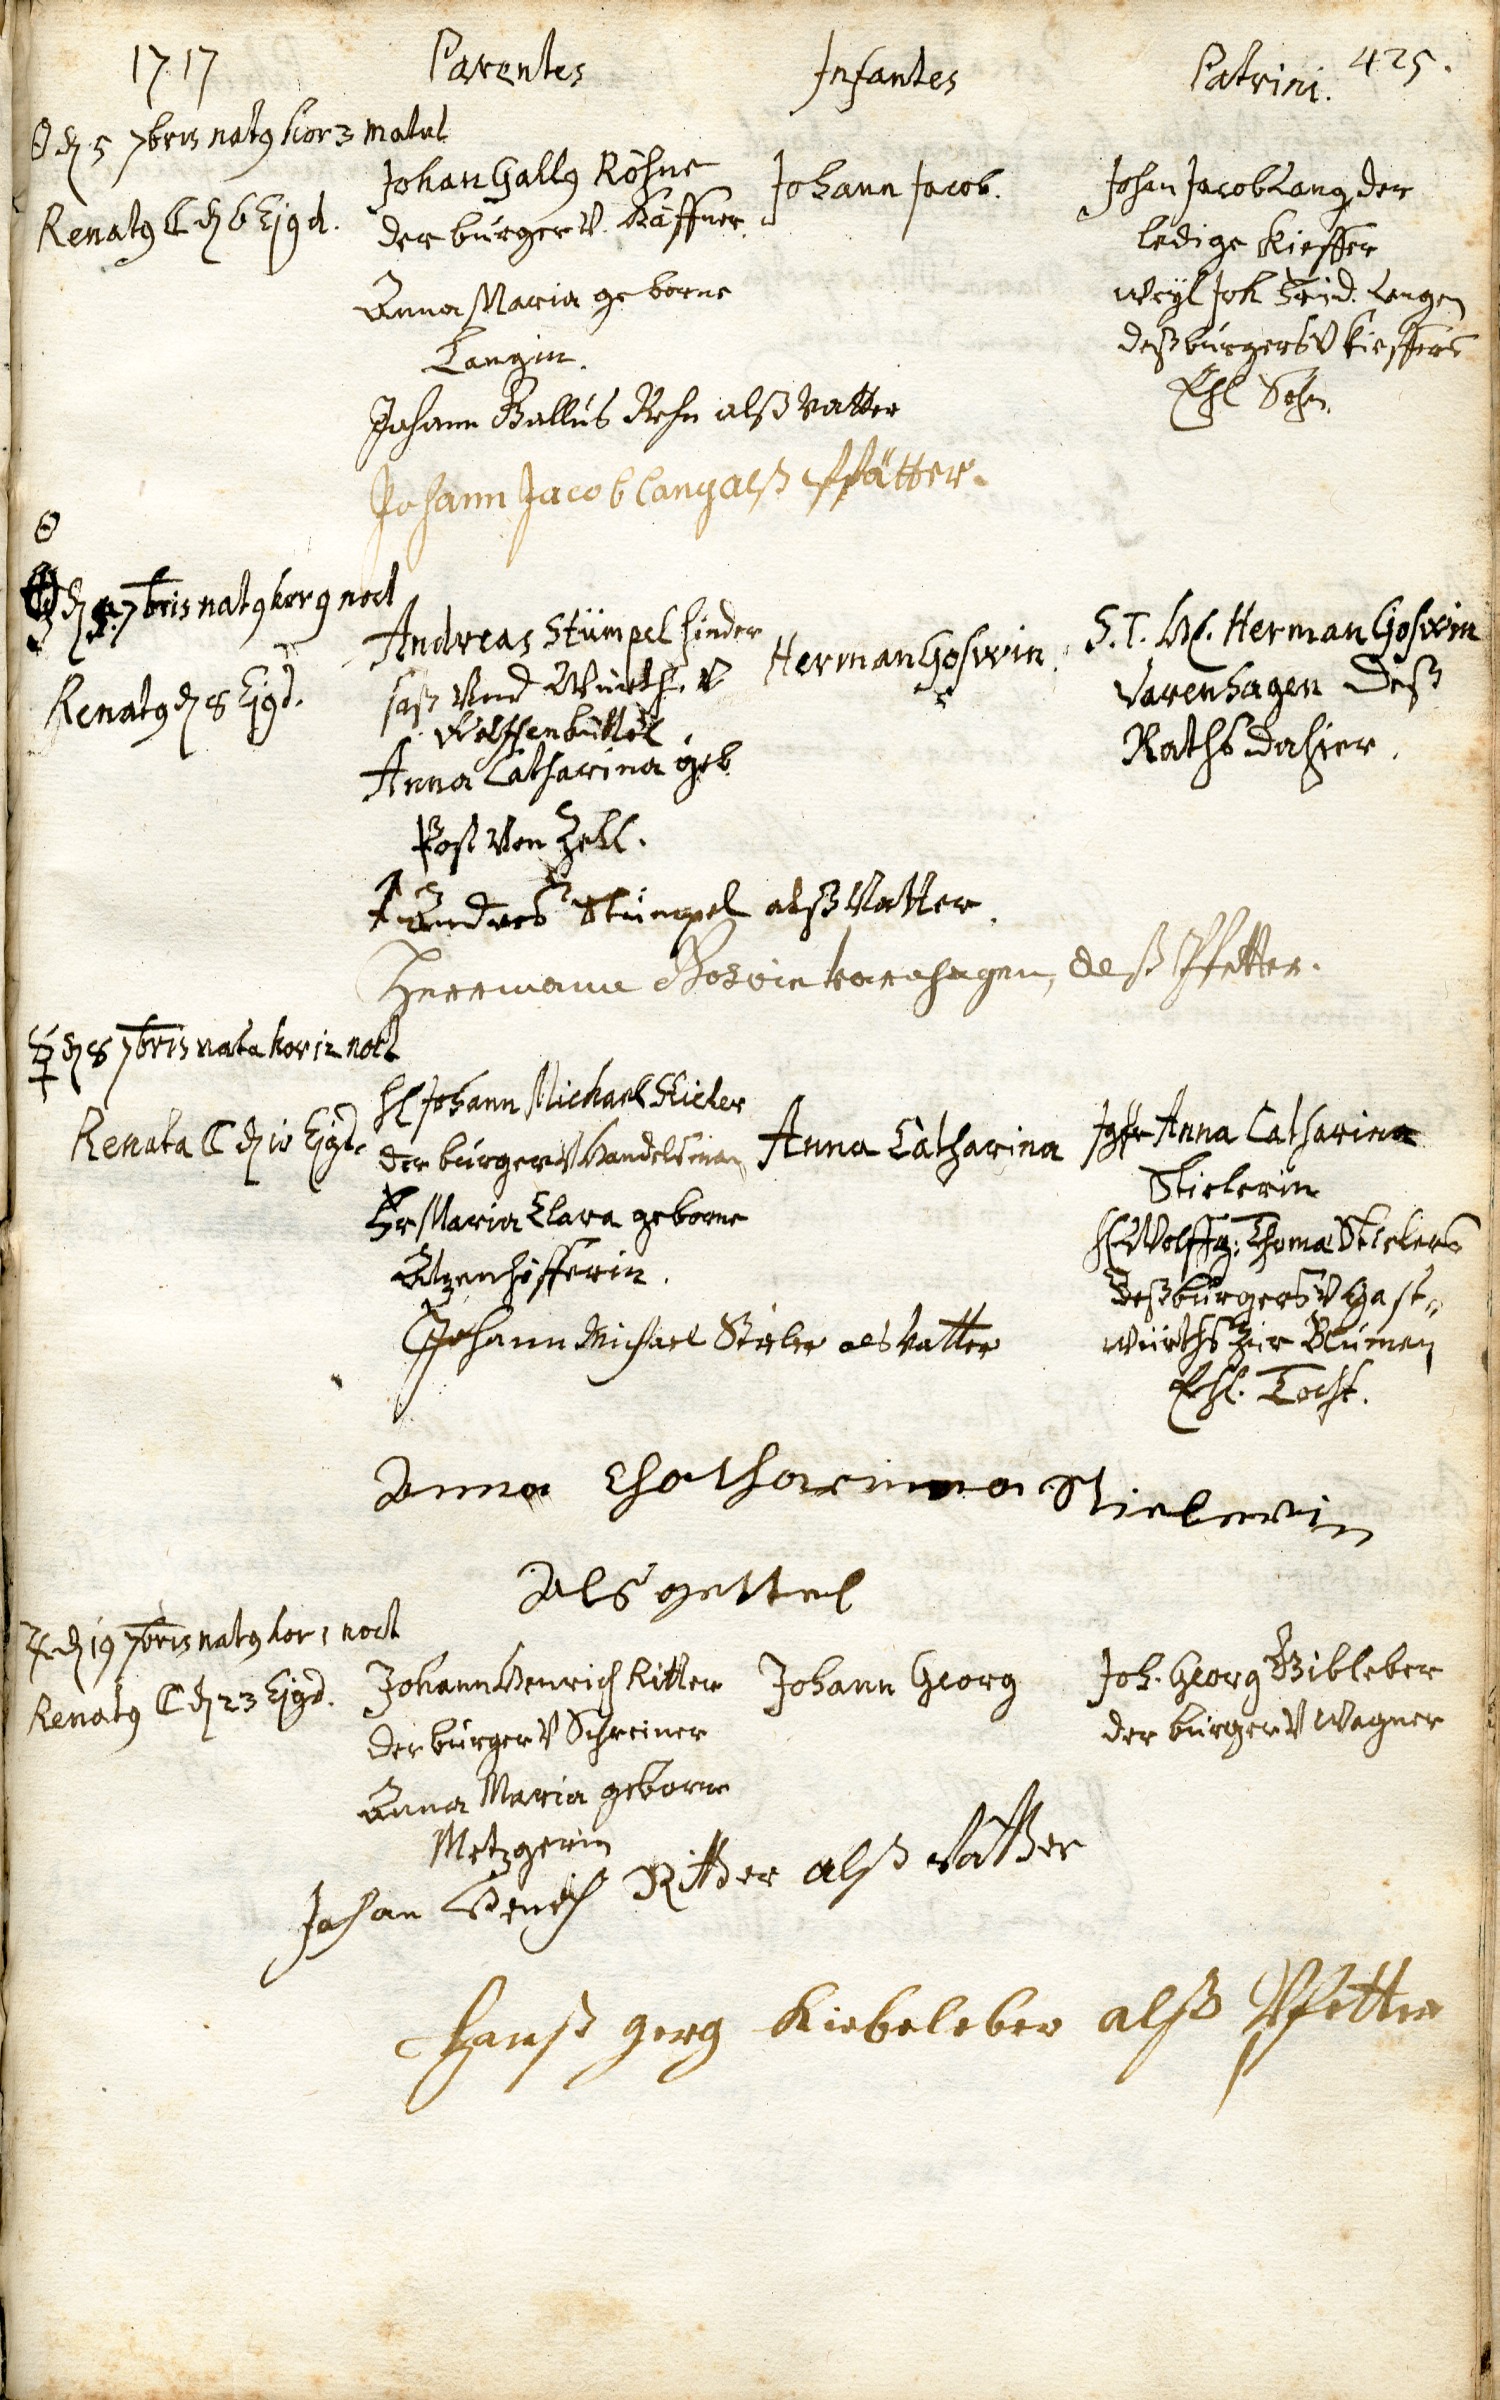 1717
Parentes
Infantes
Patrini.
425.
☉ d 5 7bris nat9 hor 3 matut
Renat9 ☾ d 6 Ejgd.
Johan Gall9 Röhne
der burger v. Häffner
Anna Maria geborne
Langin.
Johann Jacob.
Johan Jacob Lang der
ledige Kieffer
weyl Joh Frid. Langen
deß burgers v Kieffers
Ehl Sohn.
Johann Gallus Rehn alß vatter
Johann Jacob lang alß pfätter.
7bris nat9 hor 9 noct
Renat9 d 8 Ejgd.
Andreas Stümpel hinder
saß vnd Würth. v
Wolffenbüttel
Anna Catharina geb
Post von Zell.
Herman Goswin.
S. T. H. Herman Goswin
Varenhagen deß
Raths dahier.
Andres Stümpel alß Vatter.
Herrmann Goswin varnhagen, alß Pfetter.
☿ d 8 7bris nata hor 12 noct
Renata ☾ d 10 Ejgd.
H Johann Michael Stieler
der burger v Handelsman
Fr Maria Clara geborne
Atzenhöfferin.
Anna Catharina
Jgfr Anna Catharina
Stielerin
H Wolffg: Thomæ Stielers
deß burgers v Gast-
würths zur Blumen
Ehl. Tocht.
Johann Michael Stieler als Vatter
Anna Chatharinna Stielerin
Als gettel
♃ d 19 7bris nat9 hor 1 noct
Renat9 ☾ d 23 Ejgd.
Johann Henrich Ritter
der burger v Schreiner
Anna Maria geborne
Metzgerin
Johann Georg
Joh. Georg Kibleber
der burger v Wagner
Johan Henrich Ritter alß vatter
Hanß gerg Kiebeleber alß Pfetter